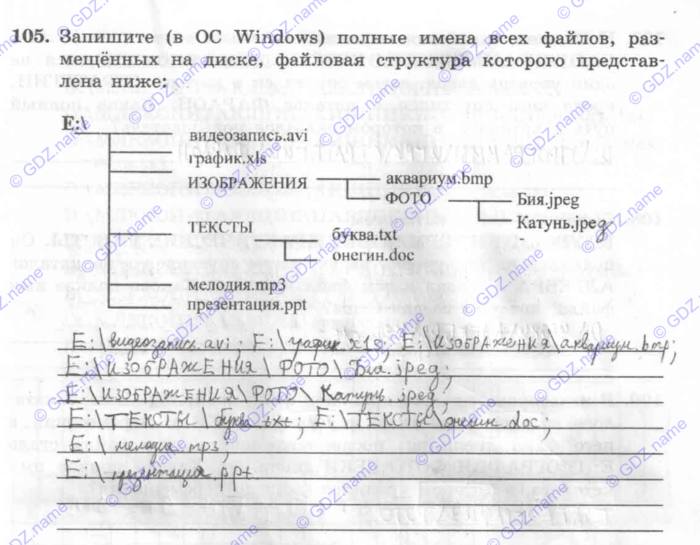 105. Запишите (в ОС Windows) полные имена всех файлов, раз-
мещённых на диске, файловая структура которого представ-
лена ниже:
E:\
видеозапись.avi
график.xls
ИЗОБРАЖЕНИЯ
аквариум.bmp
ФОТО
Бия.jpeg
Катунь.jpeg
ТЕКСТЫ
буква.txt
онегин.doc
мелодия.mp3
презентация.ppt
E:\видеозапись.avi; E:\график.xls; E:\ИЗОБРАЖЕНИЯ\аквариум.bmp;
E:\ИЗОБРАЖЕНИЯ\ФОТО\Бия.jpeg;
E:\ИЗОБРАЖЕНИЯ\ФОТО\Катунь.jpeg;
E:\ТЕКСТЫ\буква.txt; E:\ТЕКСТЫ\онегин.doc;
E:\мелодия.mp3;
E:\презентация.ppt
© GDZ.name